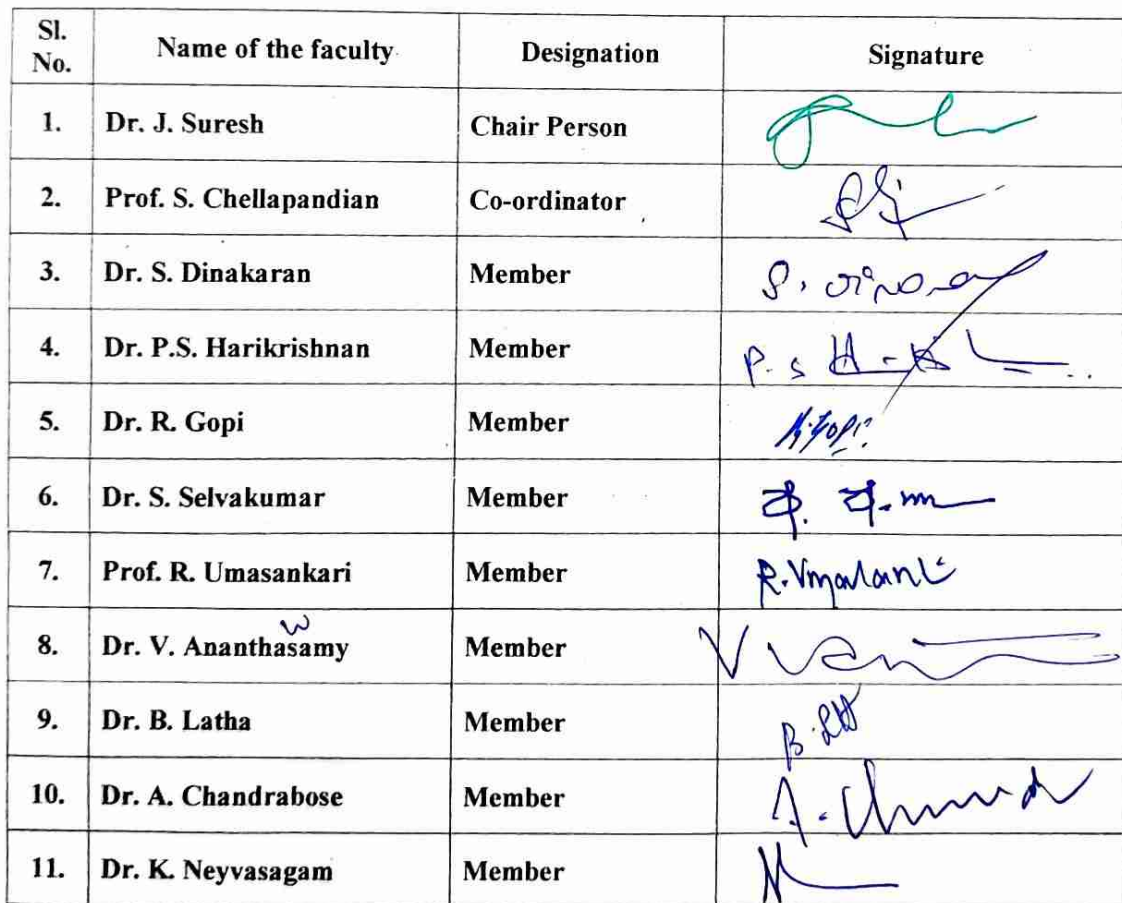 Sl. No. Name of the faculty Designation Signature
1. Dr. J. Suresh Chair Person
2. Prof. S. Chellapandian Co-ordinator
3. Dr. S. Dinakaran Member
4. Dr. P.S. Harikrishnan Member P. S
5. Dr. R. Gopi Member R. Gopi
6. Dr. S. Selvakumar Member
w
7. Prof. R. Umasankari Member R.
8. Dr. V. Ananthasamy Member V
9. Dr. B. Latha Member B.
10. Dr. A. Chandrabose Member A.
11. Dr. K. Neyvasagam Member